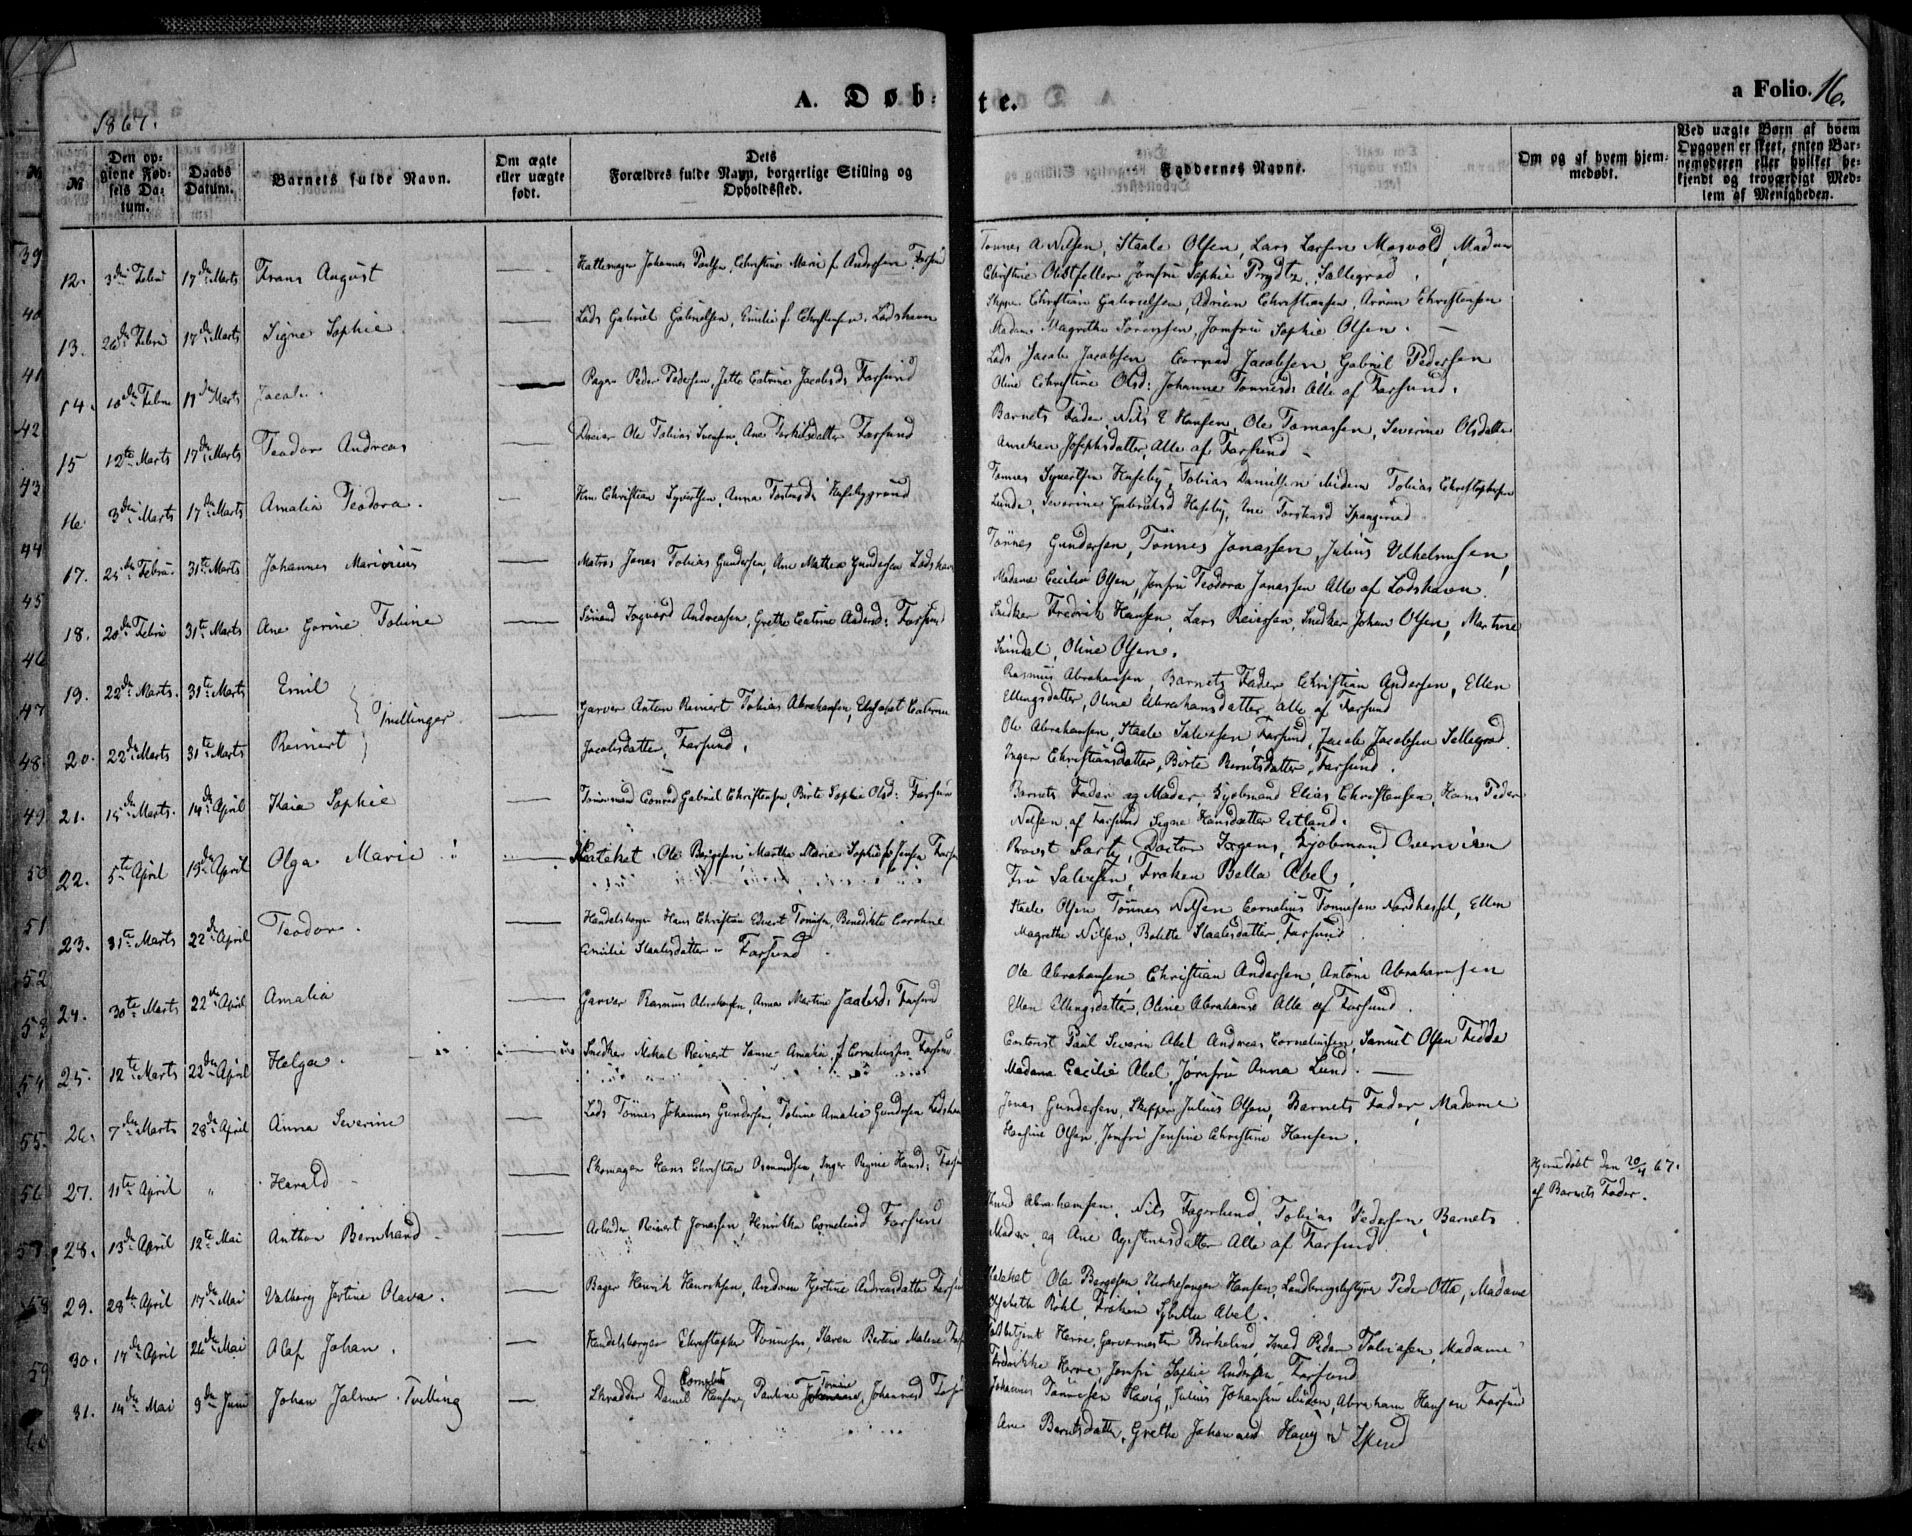 A. Døbte.
a Folio. 16.
1867.
№
Den opgivne Fødsels Datum.
Daabs Datum.
Barnets fulde Navn.
Om ægte eller uægte født.
Dets Forældres fulde Navn, borgerlige Stilling og Opholdssted.
Faddernes Navne.
Om og af hvem hjemmedøbt.
Ved uægte Børn af hvem Opgaven er skeet, enten Barnemoderen eller hvilket bekjendt og troværdigt Medlem af Menigheden.
12. 3die Febru 17de Marts Frans August — Johannes Poulsen, Christine Marie f Andersen, Farsund
Tønnes A Nilsen, Staale Olsen, Lars Larsen Mosvold, Madam
Christine Jomfru Sophie Prydtz,
13. Febru 17de Marts Signe Sophie — Lods Gabriel Gabrielsen, Emilie f Christensen, Lodshavn
Skipper Christian Gabrielsen, Adrian Christiansen, Christensen
Madam Magrethe Sørensen, Jomfru Sophie Olsen. —
14. 10de Febru 17de Marts Jacob. — Peder Pedersen, Jette Catrine Jacobsd: Farsund
Lods Jacob Jacobsen, Conrad Jacobsen, Gabriel Pedersen
Oline Christine Olsd: Johanne Tønnesd: Alle af Farsund.
15 12te Marts 17de Marts Teodor Andreas — Ole Tobias Svensen, Ane Torkilsdatter Farsund
Barnets Fader, Nils E Hansen, Ole Tomassen, Severine Olsdatter
Anneken Josephsdatter, Alle af Farsund —
16 3die Marts 17de Marts Amalia Teodora. — Christian Syvertsen, Anna
Tønnes Syvertsen Huseby, Tobias Danielsen ibidem Tobias Christophersen
Lunde, Severine Gabrielsd Huseby, Ane Torstensd
17. Febru. 31te Marts Johannes — Matros Jonas Tobias Gundersen, Ane Mathea Gundersen Lodshavn
Tønnes Gundersen, Tønnes Jonassen, Julius Vilhelmsen,
Madame Cecilie Olsen, Jomfru Teodora Jonassen Alle af Lodshavn.
18. 20de Febru 31te Marts Ane Gorine Tobine — Andreassen, Grethe Catrine Farsund
Snedker Fredrik Hansen, Lars Reiersen, Snedker Johan Olsen, Martine
Sundal, Oline Olsen.
19. 22de Marts. 31te Marts Emil } Tvillinger.
Rasmus Abrahamsen, Barnets Fader Christian Andersen, Ellen
Ellingsdatter, Oline Abrahamsdatter, Alle af Farsund
— Garver Anton Reinert Tobias Abrahamsen, Elisabet Catrine
20. 22de Marts 31te Marts Reinert Jacobsdatter, Farsund.
Ole Abrahamsen, Staale Salvesen, Farsund, Jacob Jacobsen
Inger Christiansdatter, Birte Berntsdatter, Farsund.
21. 15de Marts. 14de April Kaia Sophie — Conrad Gabriel Christensen, Birte Sophie Olsd: Farsund
Barnets Fader og Moder, Kjøbmand Elias Christensen, Hans Peder
Nilsen, af Farsund Signe Hansdatter Eitland.
22. 5te April 19de April Olga Marie — Kateket Ole Børgesen, Martha Marie Sophie f Jensen Farsund
Provst Doctor Jørgens, Kjøbmand
Fru Salvesen, Frøken Bella Abel,
23. 31te Marts 22de April Teodor. — Handelsborger Hans Christian Edvert Tønnesen, Benedikte Caroline
Amilie Staalesdatter — Farsund
Staale Olsen Tønnes Nilsen Cornelius Tønnesen Nordhassel, Ellen
Magrethe Nilsen, Bolette Staalesdatter, Farsund
24. 30te Marts 22de April Amalia — Garver Rasmus Abrahamsen, Anna Martine Jacobsd: Farsund
Ole Abrahamsen, Christian Andersen, Antone Abrahamsen
Ellen Ellingsdatter, Oline Abrahamsd Alle af Farsund.
25. 12te Marts 22de April Helga. — Snedker Mikal Reinert Amalia, f Corneliussen, Farsund
Contorist Paul Severin Abel Andreas Corneliussen, Samuel Olsen Fedde
Madame Cecilie Abel, Jomfru Anna Lund. —
26. 7de Marts 28de April Anna Severine — Lods Tønnes Johannes Gundersen, Tobine Amalia Gundersen Lodshavn
Jonas Gundersen, Skipper Julius Olsen, Barnets Fader, Madame
Hansine Olsen, Jomfru Jensine Christine Hansen.
27. 11te April „ Harald — Skomager Hans Christian Osmundsen, Inger Regine Hansd:
Hjemmedøbt den 20/4 67.
af Barnets Fader.
28. 13de April 12te Mai Anthon Bernhard — Arbeider Reinert Jonassen, Henrikke Farsund
Abrahamsen, Nils Fagerlund, Tobias Pedersen, Barnets
Moder, og Ane Alle af Farsund
29. 28de April 17de Mai Valborg Olava. — Bager Henrik Henriksen, Andreasdatter Farsund
Kateket Ole Børgesen, Kirkesanger Hansen, Peder Otto, Madame
Elisabeth Röhl, Frøken Abel.
30. 17de April 26de Mai Olaf Johan. — Handelsborger Christopher Tønnesen, Karen Bertine Malene
Herre, Garvermester Birkeland, Peder Tobiasen, Madame
Fredrikke Herre, Jomfru Sophie Andersen, Farsund
31. 14de Mai 9de Juni Johan Jalmer. Tvilling — Skredder Daniel Cornelius Hansen, Pauline Tomine Johannesd
Johannes Tønnesen Havig, Julius Johansen ibidem, Abraham Hansen Farsund
Ane Berntsdatter, Grethe Johannesd Havig
39
40
41
42
43
44
45
46
47
48
49
50
51
52
53
54
55
56
57
58
59
60